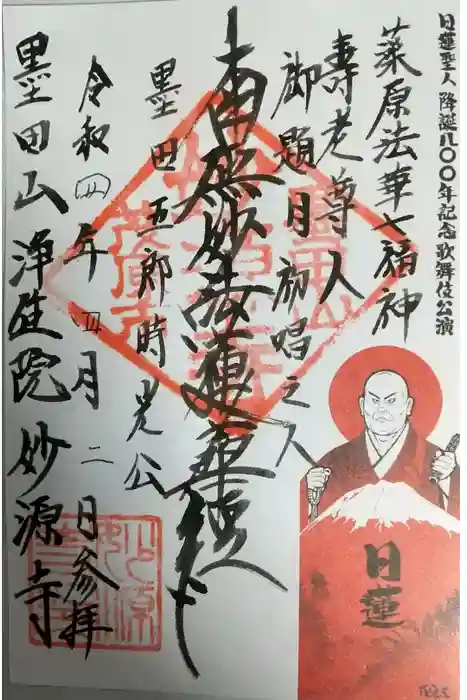 日蓮聖人 降誕八〇〇年記念 歌舞伎公演
茱原法華七福神
壽老尊人
御題目初唱之人
南無妙法蓮華経
墨田五郎時光公
令和四年四月二日参拝
墨田山 浄延院 妙源寺
日蓮